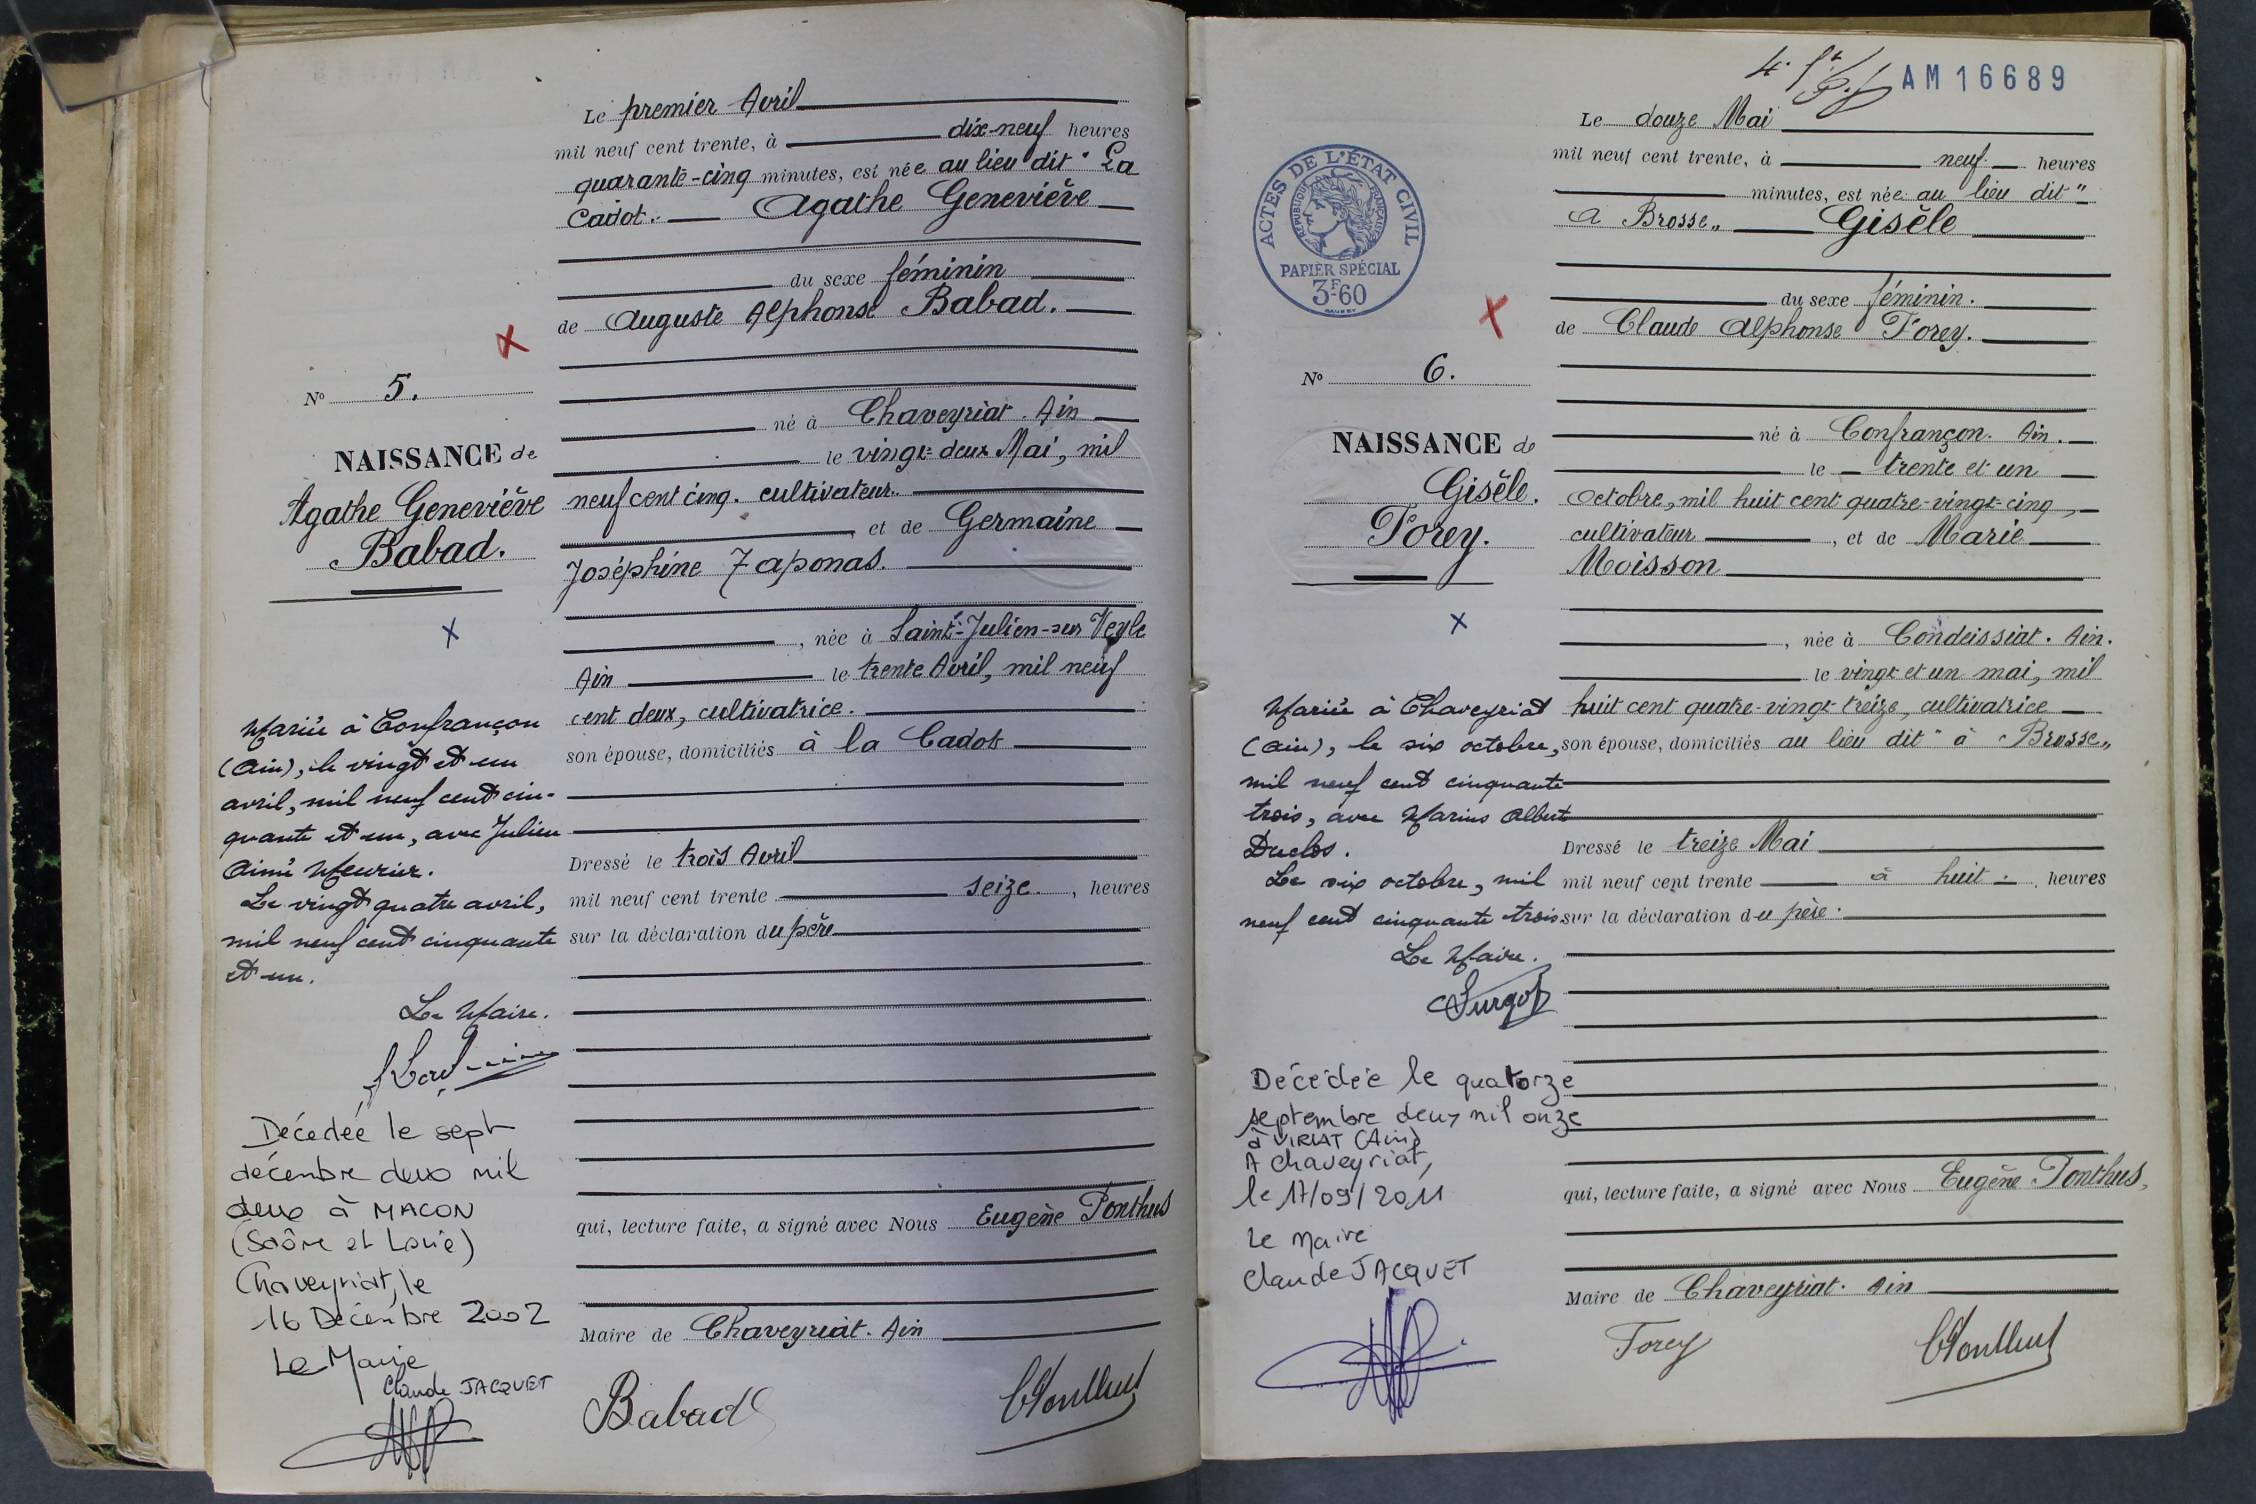 Le premier Avril
mil neuf cent trente, à dix-neuf heures
quarante-cinq minutes, est née au lieu dit " La
Cadot. Agathe Geneviève
du sexe féminin
de Auguste Alphonse Babad.
né à Chaveyriat. Ain
le vingt-deux Mai, mil
neuf cent cinq. cultivateur.
et de Germaine
Joséphine Taponas.
, née à Saint-Julien-sur Veyle
Ain le trente Avril, mil neuf
cent deux, cultivatrice.
son épouse, domiciliés à la Cadot
Dressé le trois Avril
mil neuf cent trente seize. , heures
sur la déclaration du père
qui, lecture faite, a signé avec Nous Eugène Ponthus
Maire de Chaveyriat. Ain
Babad
No 5.
NAISSANCE de
Agathe Geneviève
Babad.
x
Mariée à Confrançon
(Ain), le vingt et un
avril, mil neuf cent cin-
quante et un, avec Julien
Aimé Meurier.
Le vingt quatre avril,
mil neuf cent cinquante
et un.
Le Maire.
Décédée le sept
décembre deux mil
deux à MACON
(Saône et Loire)
Chaveyriat, le
16 Décembre 2002
Le Maire
Claude JACQUET
AM 16689
ACTES DE L'ÉTAT CIVIL
RÉPUBLIQUE FRANÇAISE
PAPIER SPÉCIAL
3F60
Le douze Mai
mil neuf cent trente, à neuf heures
minutes, est née au lieu dit "
à Brosse" Gisèle
du sexe féminin.
de Claude Alphonse Forey.
né à Confrançon. Ain.
le trente et un
Octobre, mil huit cent quatre-vingt-cinq,
cultivateur , et de Marie
Moisson
, née à Condeissiat. Ain.
le vingt et un mai, mil
huit cent quatre-vingt-treize, cultivatrice
son épouse, domiciliés au lieu dit " à Brosse"
Dressé le treize Mai
mil neuf cent trente à huit . heures
sur la déclaration du père.
qui, lecture faite, a signé avec Nous Eugène Ponthus,
Maire de Chaveyriat. Ain
Forey
No 6.
NAISSANCE de
Gisèle.
Forey.
x
Mariée à Chaveyriat
(Ain), le six octobre,
mil neuf cent cinquante
trois, avec Marius Albert
Duclos.
Le six octobre, mil
neuf cent cinquante trois
Le Maire.
Décédée le quatorze
septembre deux mil onze
à VIRIAT (Ain)
A Chaveyriat,
le 17/09/2011
Le Maire
Claude JACQUET